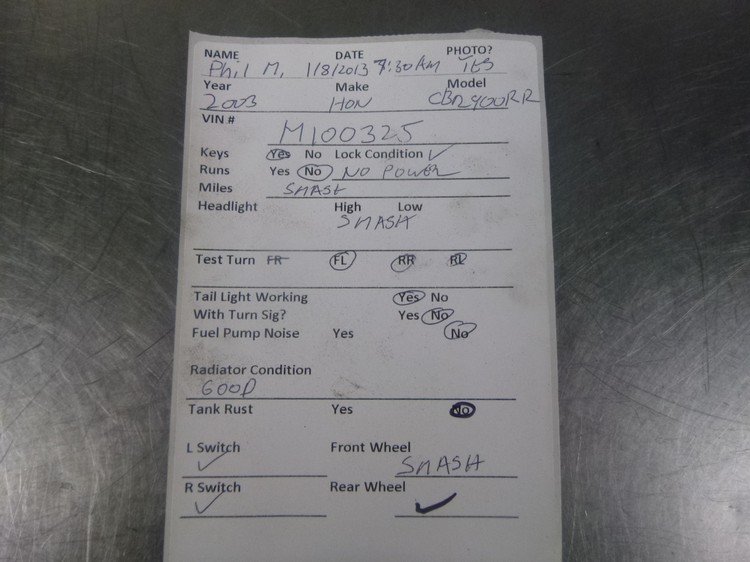 NAME DATE PHOTO?
Phil M. 1/8/2013 7:30 AM YES
Year Make Model
2003 HON CBR900RR
VIN # M100325
Keys Yes No Lock Condition ✓
Runs Yes No NO POWER
Miles SMASH
Headlight High Low
SMASH
Test Turn FR FL RR RL
Tail Light Working Yes No
With Turn Sig? Yes No
Fuel Pump Noise Yes No
Radiator Condition
GOOD
Tank Rust Yes No
L Switch Front Wheel
✓ SMASH
R Switch Rear Wheel
✓ ✓